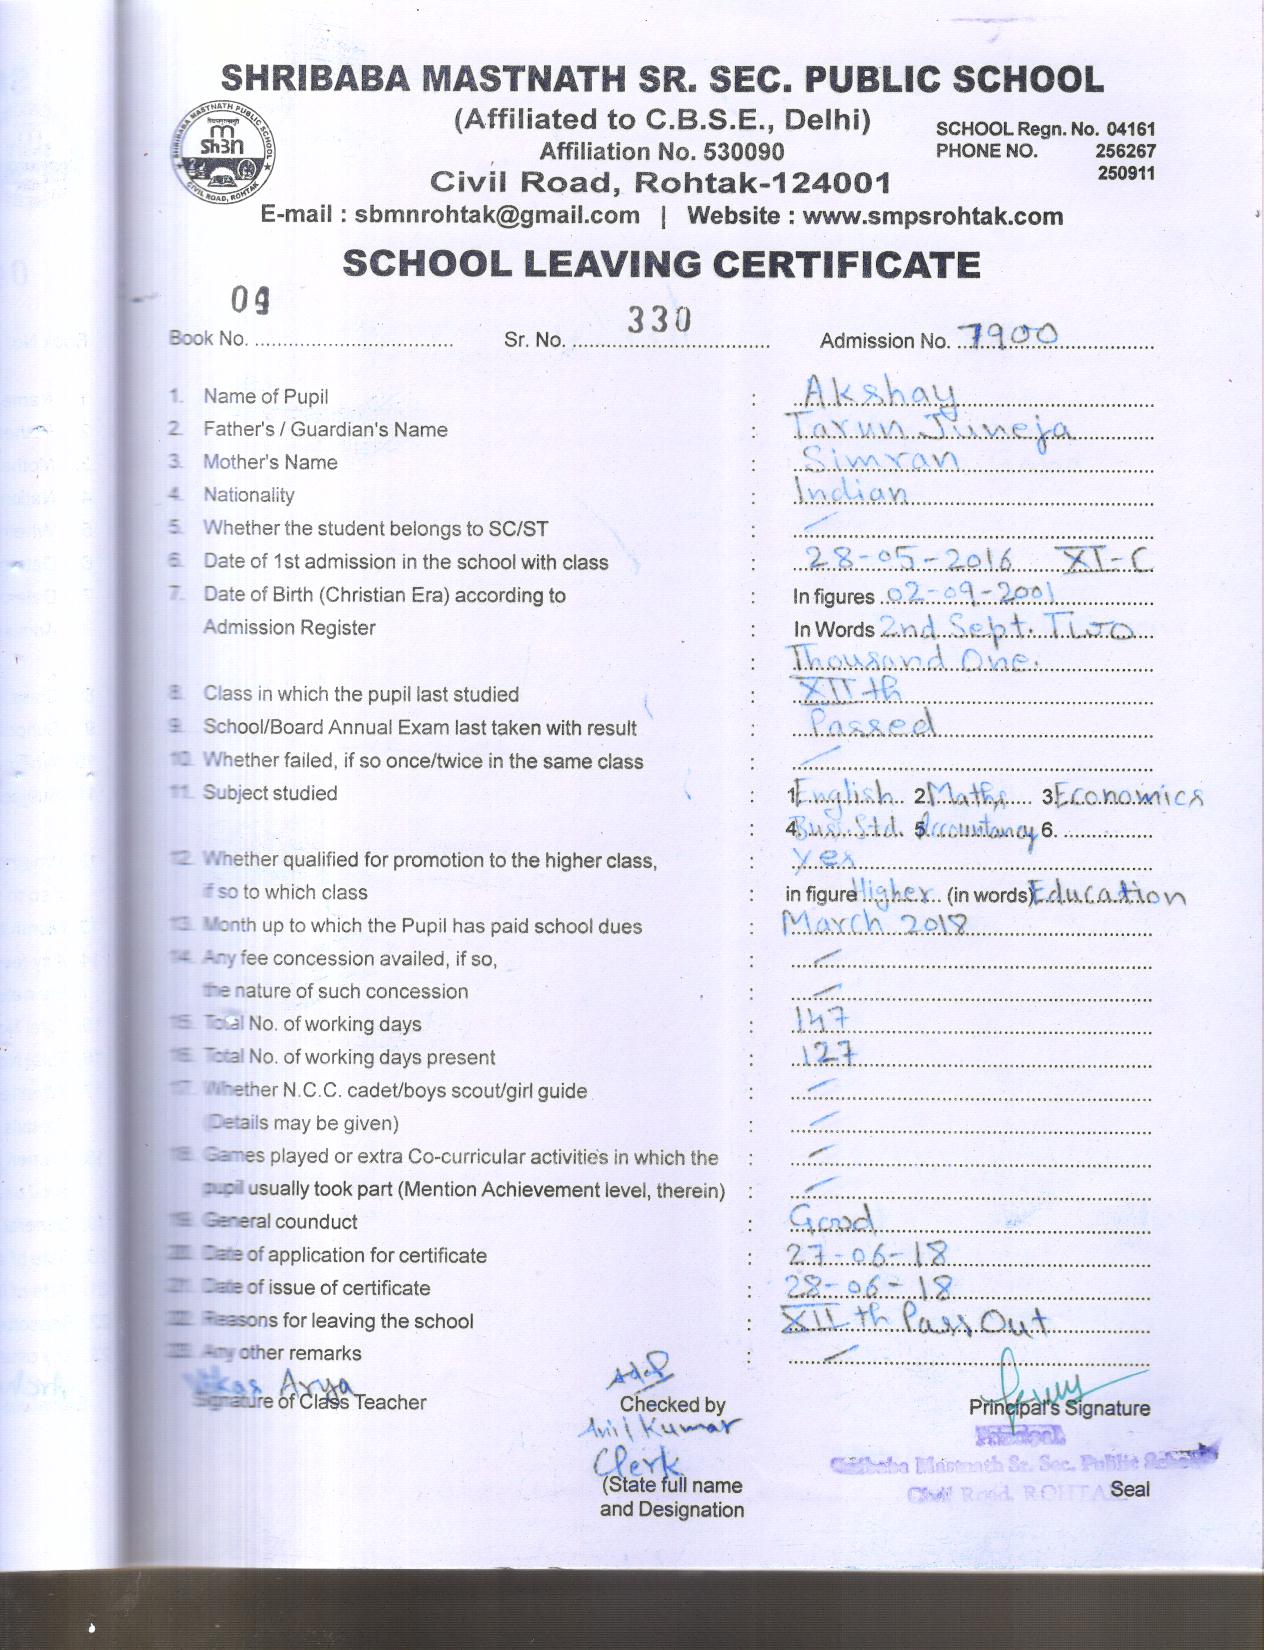 SHRIBABA MASTNATH SR. SEC. PUBLIC SCHOOL
(Affiliated to C.B.S.E., Delhi)
SCHOOL Regn. No. 04161
Affiliation No. 530090
PHONE NO. 256267
250911
Civil Road, Rohtak-124001
E-mail : sbmnrohtak@gmail.com | Website : www.smpsrohtak.com
SHRIBABA MASTNATH PUBLIC SCHOOL
Sh3n
CIVIL ROAD, ROHTAK
SCHOOL LEAVING CERTIFICATE
Book No. 09 Sr. No. 330 Admission No. 7900
1. Name of Pupil : Akshay
2. Father's / Guardian's Name : Tarun Juneja
3. Mother's Name : Simran
4. Nationality : Indian
5. Whether the student belongs to SC/ST : /
6. Date of 1st admission in the school with class : 28-05-2016 XI-C
7. Date of Birth (Christian Era) according to : In figures 02-09-2001
Admission Register : In Words 2nd Sept. Two
: Thousand One.
8. Class in which the pupil last studied : XIIth
9. School/Board Annual Exam last taken with result : Passed
10. Whether failed, if so once/twice in the same class : /
11. Subject studied : 1 English 2 Maths 3 Economics
: 4 Bus. Std. 5 Accountancy 6.
12. Whether qualified for promotion to the higher class, : yes
if so to which class : in figure Higher (in words) Education
13. Month up to which the Pupil has paid school dues : March 2018
14. Any fee concession availed, if so, : /
the nature of such concession : /
15. Total No. of working days : 147
16. Total No. of working days present : 127
17. Whether N.C.C. cadet/boys scout/girl guide : /
(Details may be given) : /
18. Games played or extra Co-curricular activities in which the : /
pupil usually took part (Mention Achievement level, therein) : /
19. General counduct : Good
20. Date of application for certificate : 27-06-18
21. Date of issue of certificate : 28-06-18
22. Reasons for leaving the school : XIIth Pass Out
23. Any other remarks : /
Vikas Arya
Signature of Class Teacher Checked by Principal's Signature
Anil Kumar
Principal
Clerk
Shribaba Mastnath Sr. Sec. Public School
(State full name Civil Road, ROHTAK Seal
and Designation